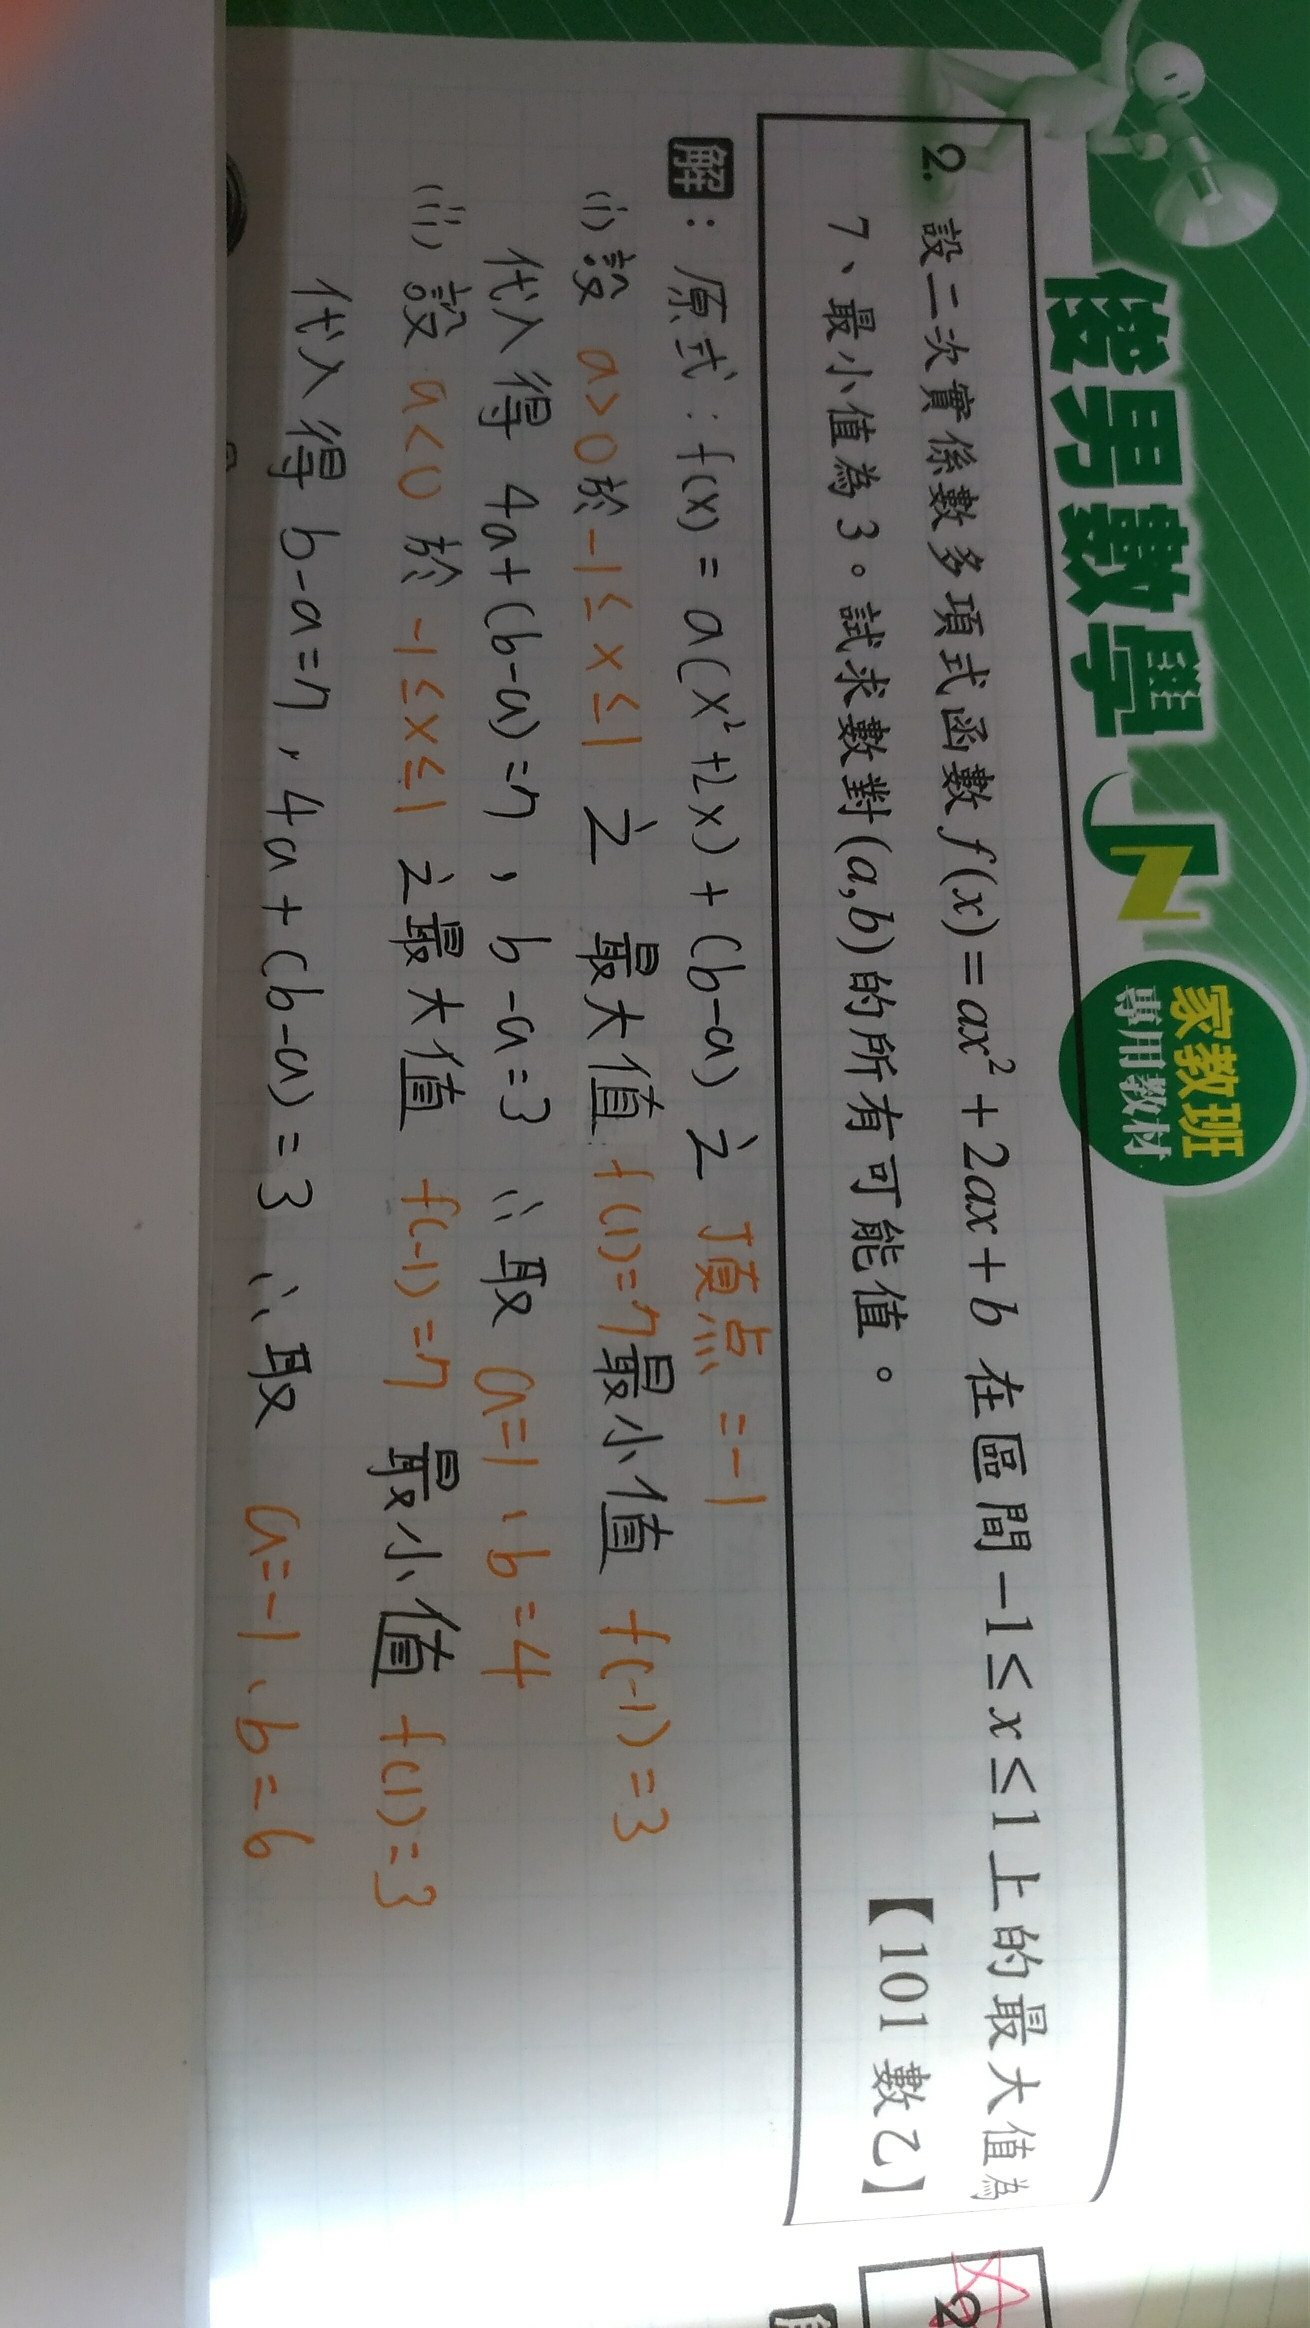 俊男數學
家教班
專用教材
2. 設二次實係數多項式函數 f(x)=ax²+2ax+b 在區間 -1≤x≤1 上的最大值為
7、最小值為 3。試求數對(a,b)的所有可能值。 【101 數乙】
解：原式：f(x) = a(x²+2x) + (b-a) 之 頂点 = -1
(i) 設 a>0 於 -1≤x≤1 之 最大值 f(1)=7 最小值 f(-1)=3
代入得 4a+(b-a)=7，b-a=3 ∴取 a=1、b=4
(ii) 設 a<0 於 -1≤x≤1 之最大值 f(-1)=7 最小值 f(1)=3
代入得 b-a=7，4a+(b-a)=3 ∴取 a=-1、b=6
2